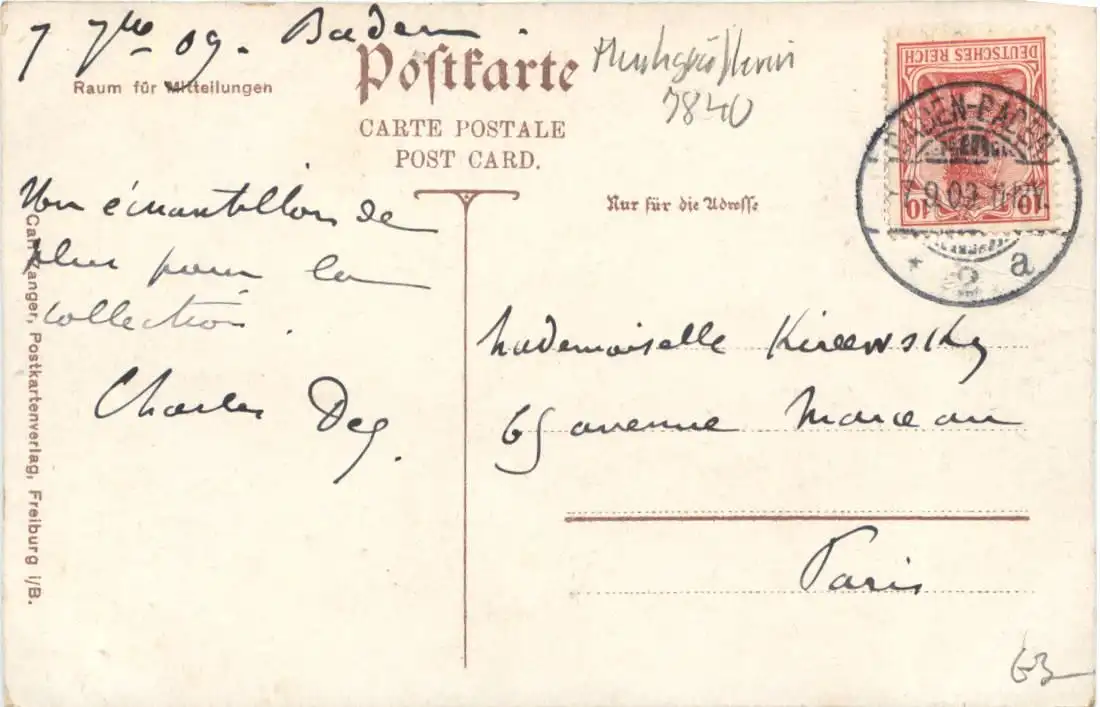 7 7bre 09. Baden.
Postkarte
Raum für Mitteilungen
CARTE POSTALE
POST CARD.
7840
Nur für die Adresse
DEUTSCHES REICH
10 10
BADEN-BADEN
-7.9.09. 11-12V.
* 2 a
Un échantillon de
plus pour la
collection.
Charles Deg.
Mademoiselle Kireewsky
65 avenue Marceau
Paris
Carl Langer, Postkartenverlag, Freiburg i/B.
63